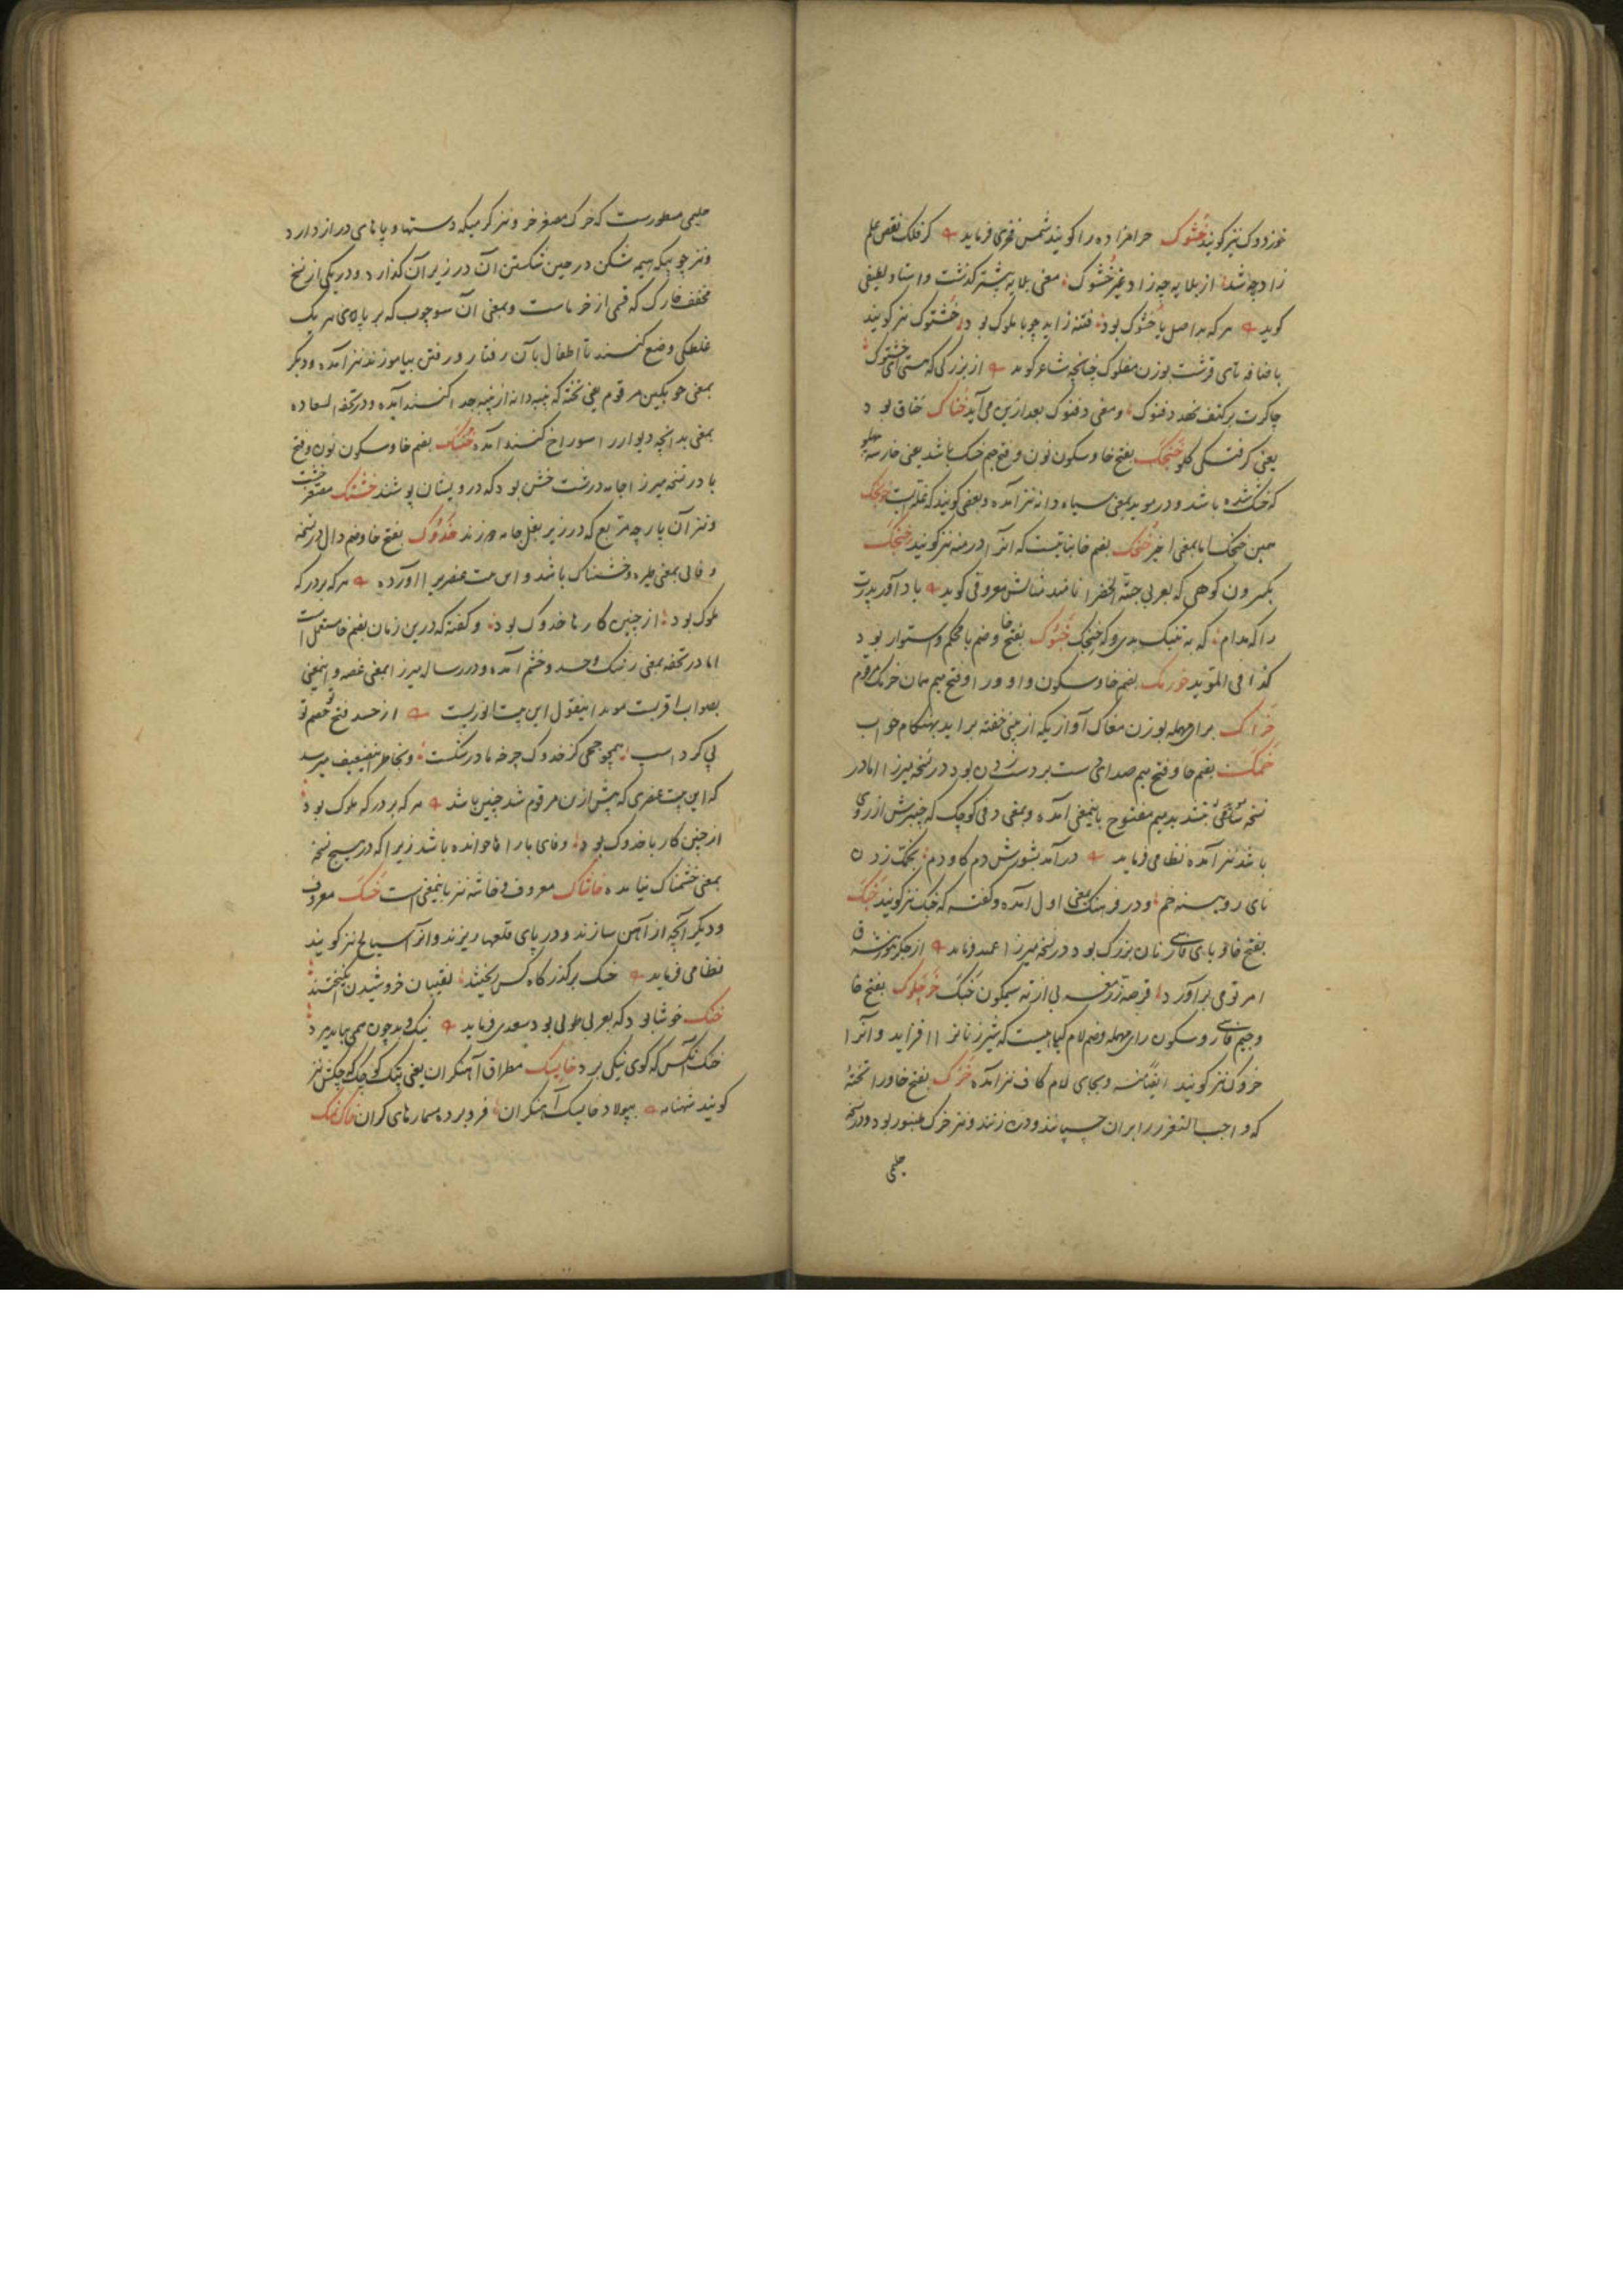 خوزدوک نیز گویند خشوک حرامزاده را گویند شمس فخری فرماید کر فلک نقص علم
زاد چه شد از بلایه چه زاد غیر خشوک معنی بلایه پیشتر گذشت و استاد لطیفی
گوید هر که بد اصل یا خشوک بود فتنه زاید چو با ملوک بود و خشتوک نیز گویند
باضافه تای قرشت بوزن مفلوک چنانچه شاعر گوید از بزرگی که هستی ای خشتوک
چاکرت بر کتف نهد دفنوک و معنی دفنوک بعد ازین می آید خناک خناق بود
یعنی گرفتگی گلو خنجک بفتح خا و سکون نون و فتح جیم خسک باشد یعنی خار سه پهلو
که خشک شده باشد و در موید بمعنی سیاه دانه نیز آمده و بعضی گویند که غله ایست خونجک
همین خنجک اما بمعنی اخیر خنجک بضم خا نباتیست که انرا درمنه نیز گویند خنجک
بکسر ون کوهی که بعربی حبّة الخضرا نامند مثالش معروفی گوید یاد آور پدرت
را که مدام که به تنیک بدی و که خنجک خبوک بفتح خا و ضم با محکم و استوار بود
کذا فی المؤید خورمک بضم خا و سکون واو و را و فتح میم همان خرمک مرقوم
خراک برای مهمله بوزن مغاک آوازیکه از بینی خفته براید بهنگام خواب
خمک بضم خا و فتح میم صدای دست بر دست زدن بود در نسخه میرزا اما در
نسخه بتشدید میم مفتوح باینمعنی آمده و بمعنی دفی کوچک که چنبرش از روی
باشد نیز آمده نظامی فرماید در آمد بشورش دم گاو دم بخمک زدن
نای رویینه خم و در فرهنگ بمعنی اول آمده و گفته که خبک نیز گویند خبک
بفتح خا و بای فارسی نان بزرگ بود در نسخه میرزا عمید فرماید از جگر
امر تو می برآورد قرصه زر بی از ته سیمگون خپک خرچلوک بفتح خا
و جیم فارسی و سکون رای مهمله و ضم لام گیاهیست که شیر زنانرا افزاید و آنرا
خروک نیز گویند ایضا منه و بجای لام کاف نیز آمده خرک بفتح خا و را تختهٔ
که واجب التعزیر را بران چسپانند و دره زنند و نیز خرک طنبور بود و در نسخه
حلیمی
حلیمی مسطورست که خرک مصغر خر و نیز کرمیکه دستها و پاهای دراز دارد
و نیز چوبیکه هیمه شکن در حین شکستن آن در زیر آن گذارد و در یکی از نسخ
مخفف خارک که قسمی از خرماست و بمعنی آن سه چوب که بر پایهای هر یک
غلطکی وضع کنند تا اطفال بآن رفتار و رفتن بیاموزند نیز آمده و دیگر
بمعنی چوبکین مرقوم یعنی تخته که پنبه دانه از پنبه جدا کنند آیده و در تحفة السعاده
بمعنی بد انچه دیوار را سوراخ کنند آمده خنبک بضم خا و سکون نون و فتح
با در نسخه میرزا جامه درشت خشن بود که درویشان پوشند خشتک مصغر خشت
و نیز آن پارچه مربع که در زیر بغل جامه دوزند خدوک بفتح خا و ضم دال در نسخه
وفائی بمعنی طیره و خشمناک باشد و این بیت عنصری را آورده هر که بر درگه
ملوک بود از چنین کارها خدوک بود و گفته که درین زمان بضم خا مستعمل است
اما در تحفه بمعنی رشک و حسد و خشم آمده و در رساله میرزا بمعنی غصه و اینمعنی
بصواب اقربست موید اینقول این بیت انوریست از حسد فتح تو خصم تو
پی کرد اسب همچو جحی کز خدوک چرخه مادر شکست و بخاطر اینضعیف میرسد
که این بیت عنصری که پیش ازین مرقوم شد چنین باشد هر که بر درگه ملوک بود
از چنین کار با خدوک بود وفائی با را ها خوانده باشد زیرا که در هیچ نسخه
بمعنی خشمناک نیامده خاشاک معروف و خاشه نیز باینمعنی است خسک معروف
و دیگر آنچه از آهن سازند و در پای قلعها ریزند و انرا سیالخ نیز گویند
نظامی فرماید خسک بر گذر گاه کین ریختند نقیبان خروشیدن انگیختند
خنک خوشا بود که بعربی طوبی بود سعدی فرماید نیک و بد چون همی بباید مرد
خنک آنکس که گوی نیکی برد خایسک مطراق آهنگران یعنی پتک کوچک و چکش نیز
گویند شهنامه بپولاد خایسک آهنگران فرو برده مسمارهای گران خاک نمک